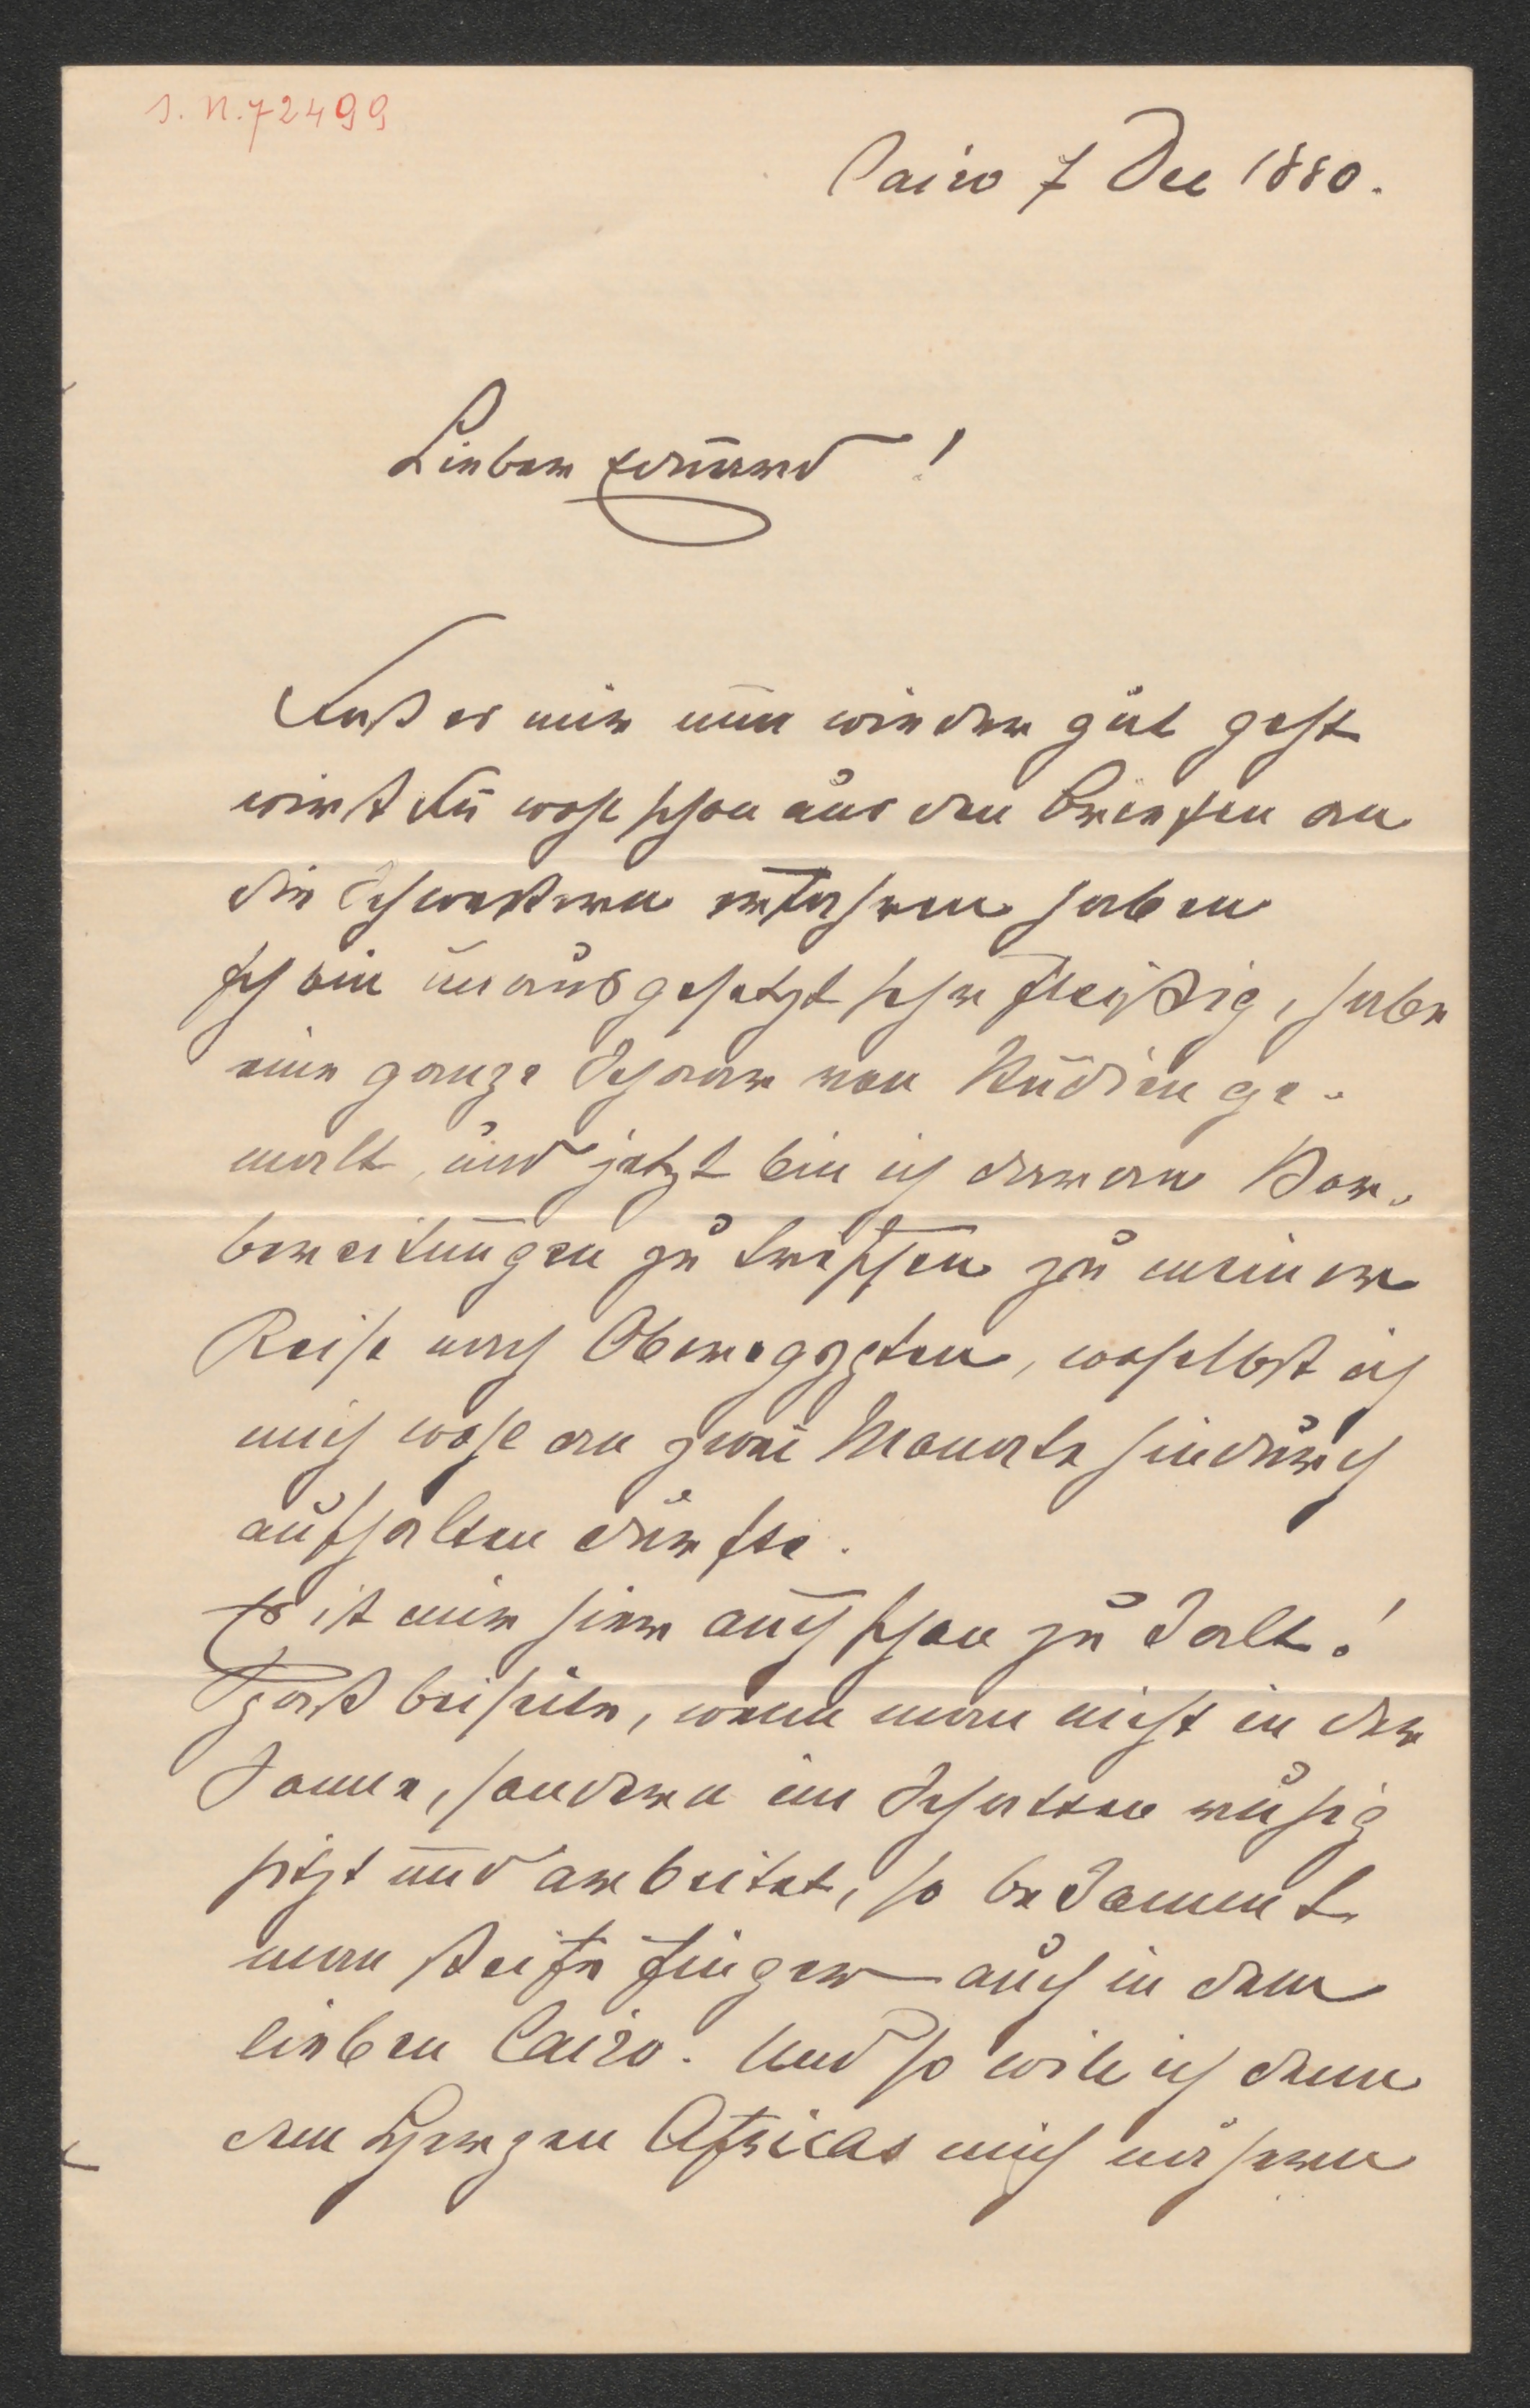 J. N. 72499
Cairo 7 Dec 1880.
Lieber Eduard!
Daß es mir nun wieder gut geht
wirst Du wohl schon aus den Briefen an
die Schwestern erfahren haben
Ich bin unausgesetzt sehr fleißig, habe
eine ganze Schaar von Studien ge-
malt, und jetzt bin ich daran Vor-
bereitungen zu treffen zu meiner
Reise nach Oberegypten, woselbst ich
mich wohl an zwei Monate hindurch
aufhalten dürfte.
Es ist mir hier auch schon zu kalt!
Spaß beiseite, wenn man nicht in der
Sonne, sondern im Schatten ruhig
sitzt und arbeitet, so bekommt
man steife Finger auch in dem
lieben Cairo. Und so will ich denn
dem Herzen Africas mich nähern